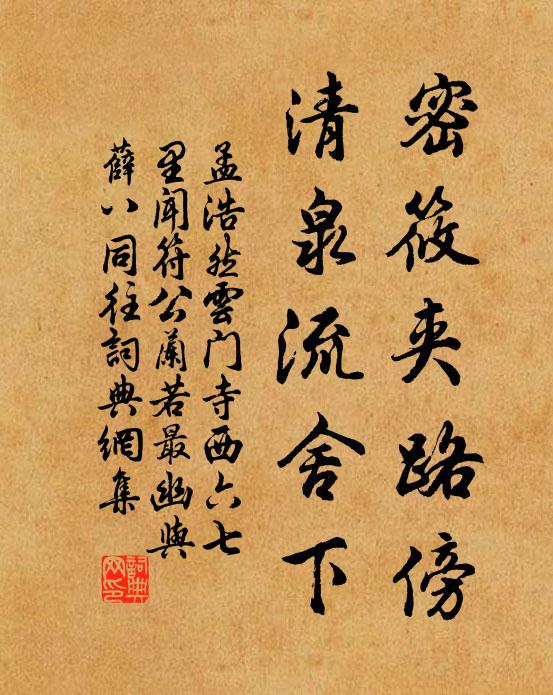 密筱夹路傍
清泉流舍下
孟浩然雲门寺西六七
里闻符公蘭若最幽與
薛八同往詞典網集
詞典网印